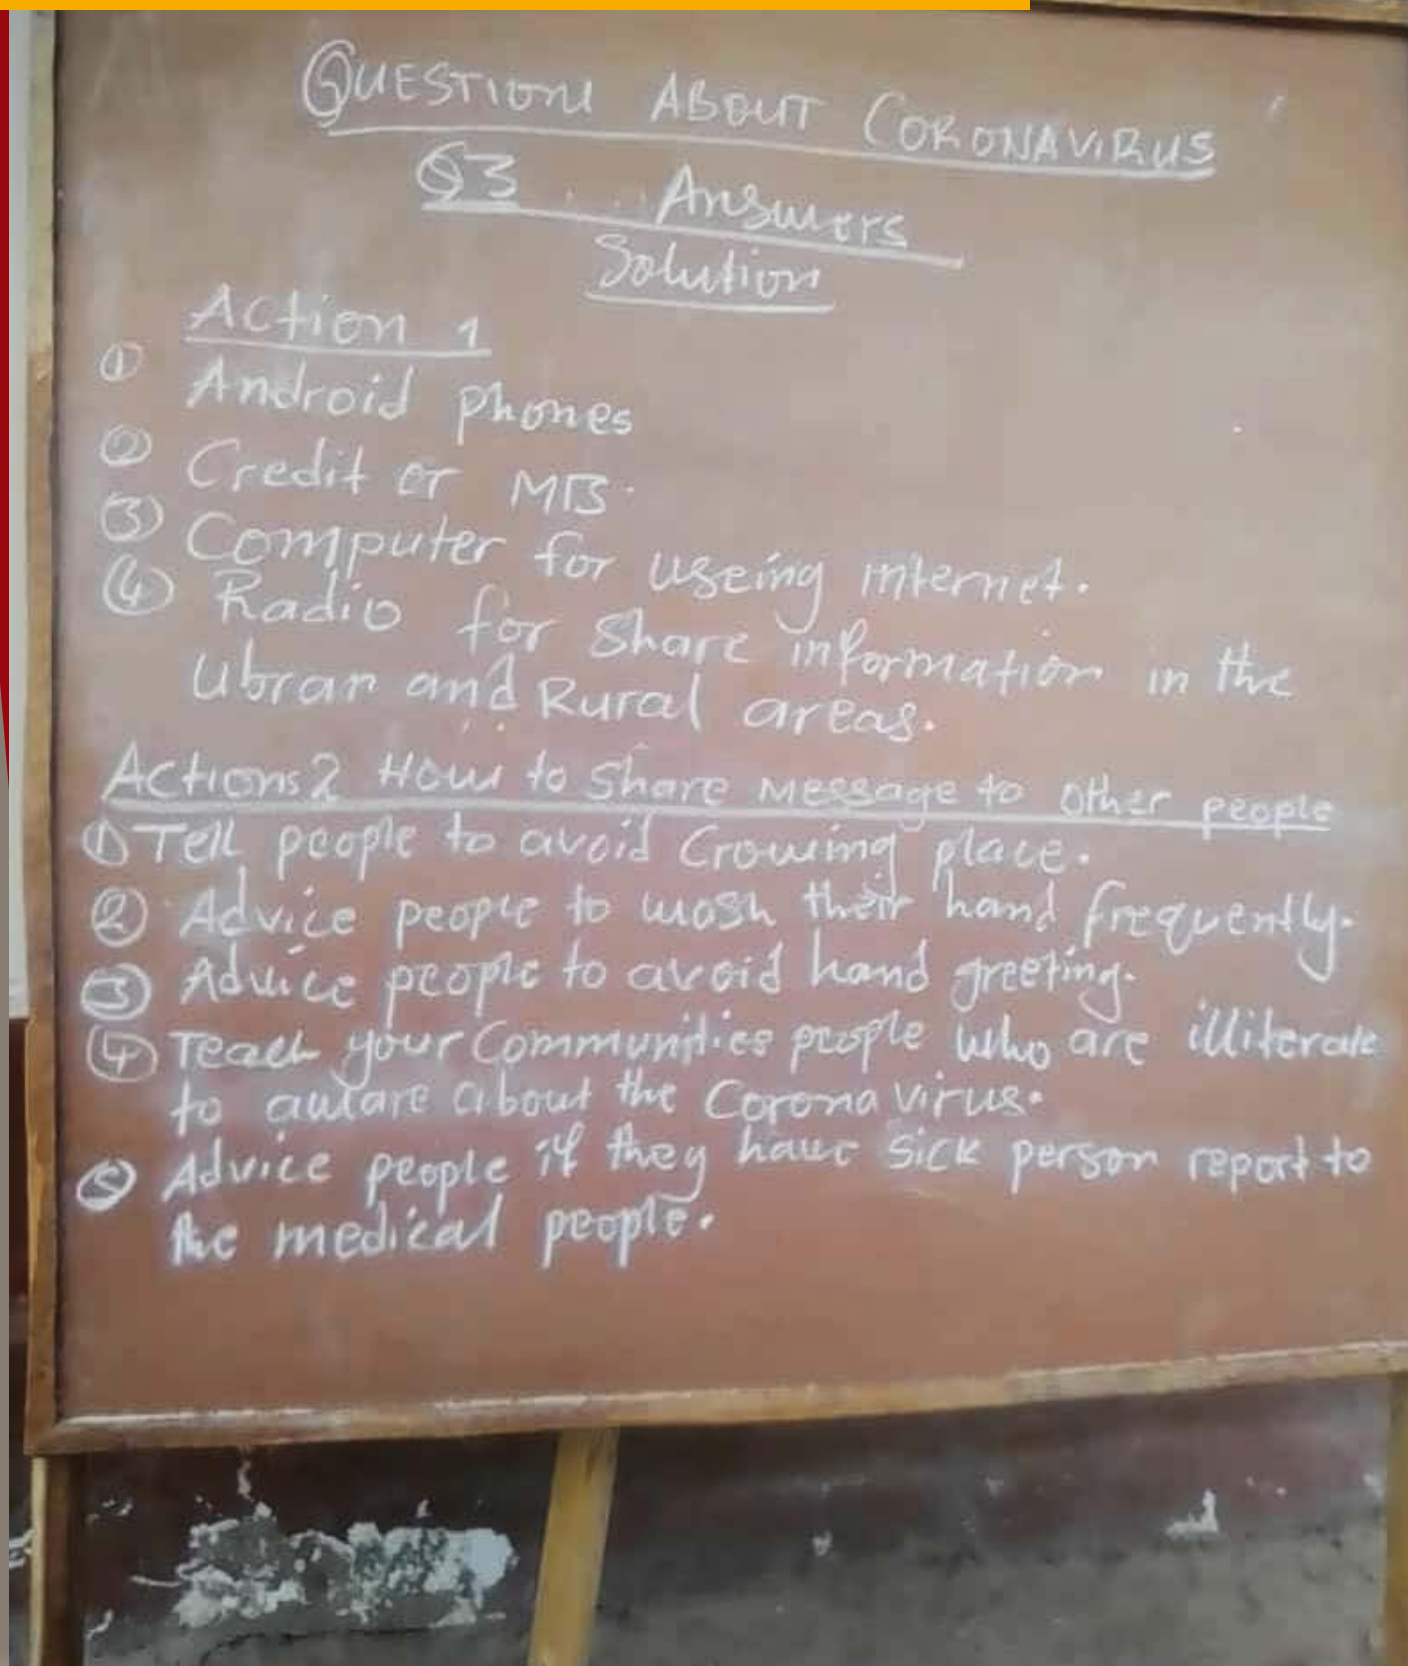 QUESTIONS ABOUT CORONAVIRUS
Q3 .... Answers
Solution
Action 1
① Android phones
② Credit or MB.
③ Computer for useing internet.
④ Radio for Share information in the
Ubran and Rural areas.
Actions 2 How to Share Message to other people
① Tell people to avoid Crowing place.
② Advice people to wash their hand frequently.
③ Advice people to avoid hand greeting.
④ Teach your Communities people who are illiterate
to aware about the Corona virus.
⑤ Advice people if they have sick person report to
the medical people.